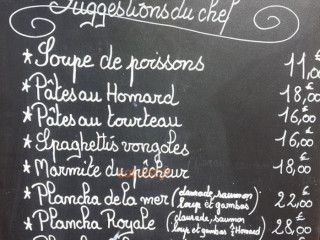 Suggestions du chef
*Soupe de poissons 11,00
*Pâtes au Homard 18,00€
*Pâtes au tourteau 16,00€
*Spaghettis vongoles 16,00€
*Marmite du pêcheur 18,00€
*Plancha de la mer (daurade, saumon, loup et gambas) 22,00€
*Plancha Royale (daurade, saumon loup et gambas ½ Homard) 28,00€